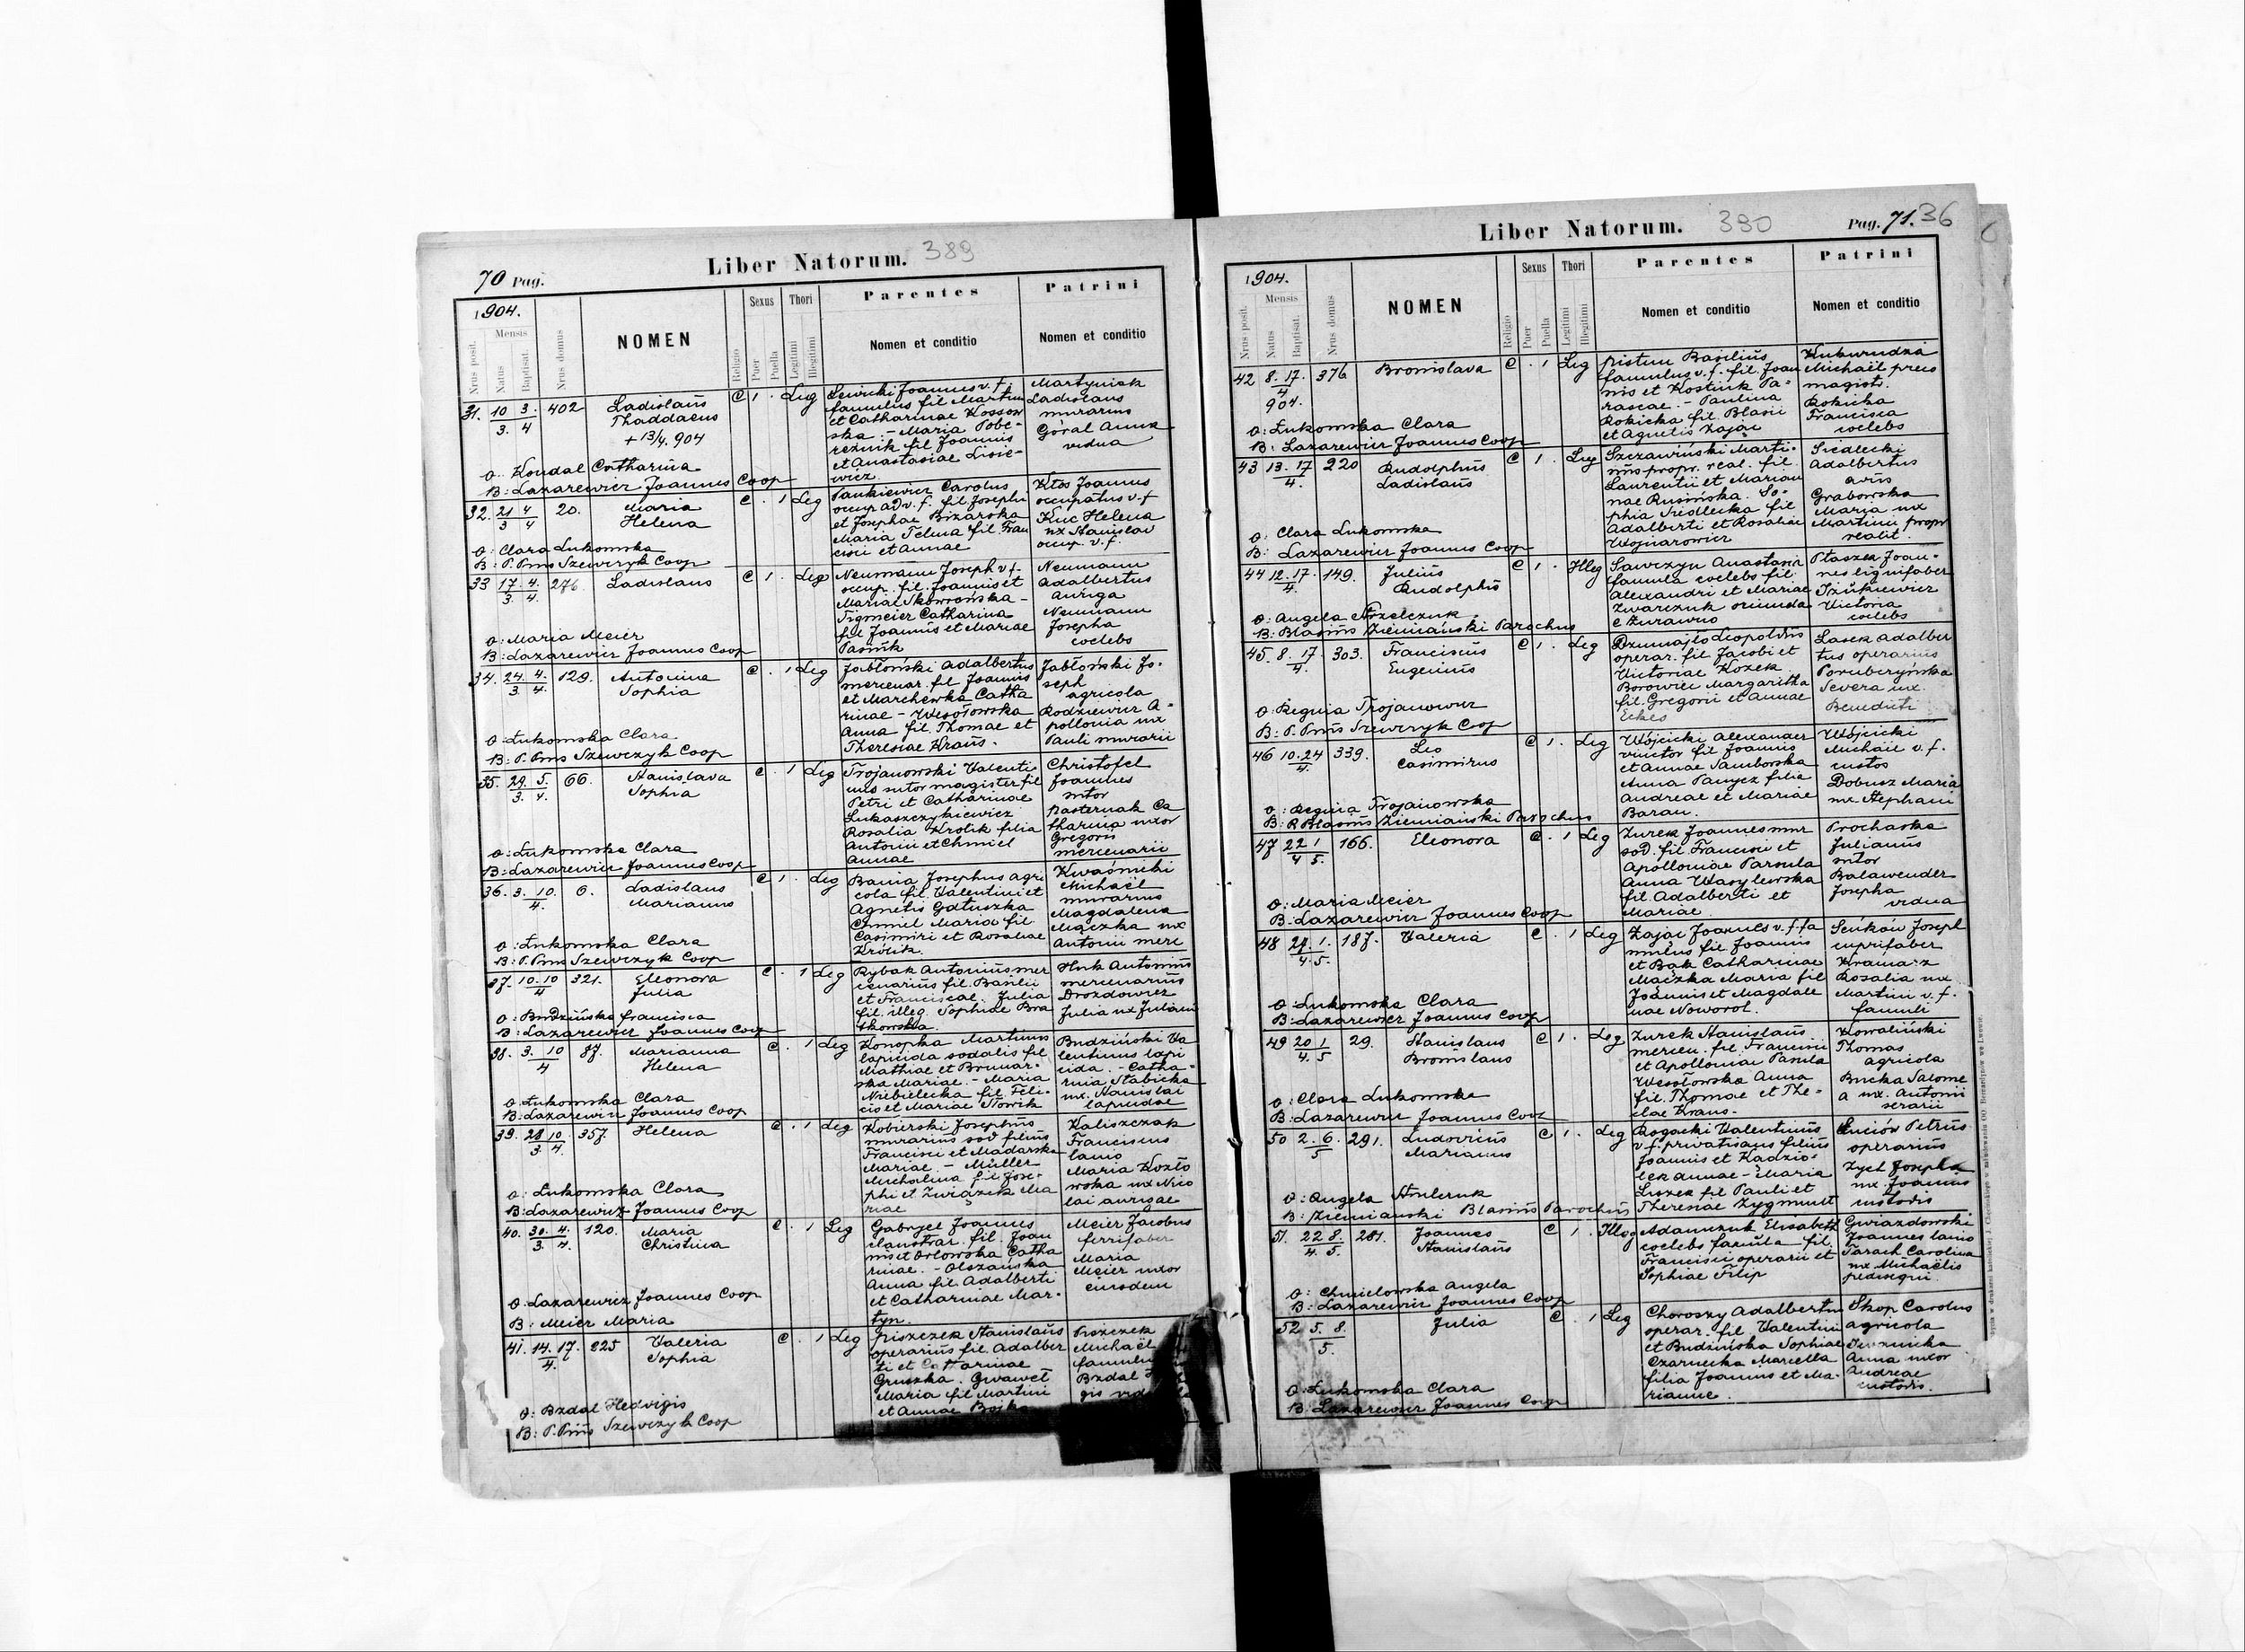 70 Pag.
Liber Natorum. 389
1904.
Nrus posit.
Mensis
Natus
Baptisat.
Nrus domus
NOMEN
Religio
Sexus
Puer
Puella
Thori
Legitimi
Illegitimi
Parentes
Nomen et conditio
Patrini
Nomen et conditio
31. 10/3. 3./4 402 Ladislaus C 1 . Leg Lewicki Joannes v. f. Martyniak
Thaddaeus famulus fil Martini Ladislaus
+ 13/4. 904 et Catharinae Kossow murarius
ska - Maria Pobe- Góral Anna
reznik fil Joannis vidua
et Anastasiae Lisie-
O. Kondal Catharina wicz
B: Lazarewicz Joannes Coop
32. 21/3 4/4 20. Maria C . 1 Leg Pankiewicz Carolus Ktos Joannes
Helena occup ad v. f. fil Josephi occupatus v. f
et Josephae Bizarska Kuc Helena
Maria Telma fil Fran ux Stanislai
O: Clara Lukomska cisci et Annae occup. v. f.
B: P. Pius Szewczyk Coop
33 17./3. 4./4. 276 Ladislaus C 1 . Leg Neumann Joseph v f. Neumann
occup. fil. Joannis et Adalbertus
Mariae Skowrońska - Auriga
Tigmeier Catharina Neumann
fil Joannis et Mariae Josepha
O: Maria Meier Pasnik coelebs
B: Lazarewicz Joannes Coop
34. 24./3 4./4. 129. Antonina C . 1 Leg Jabłoński Adalbertus Jabłoński Jo-
Sophia mercenar. fil Joannis seph
et Marchewka Catha agricola
rinae - Wesołowska Rodziewicz A-
Anna fil. Thomae et pollonia ux
O: Łukomska Clara Theresiae Kraus. Pauli murarii
B: P. Pius Szewczyk Coop
35. 29./3. 5./4. 66. Stanislava C . 1 Leg Trojanowski Valenti Christofel
Sophia nus sutor magister fil Joannes
Petri et Catharinae sutor
Lukaszczykiewicz Pasternak Ca
Rosalia Krolik filia tharina uxor
Antonii et Chmiel Gregorii
O: Łukomska Clara Annae mercenarii
B: Lazarewicz Joannes Coop
36. 3./4. 10. 6. Ladislaus C 1 . Leg Bania Josephus agri Kwaśnicki
Marianus cola fil. Valentini et Michaël
Agnetis Gałuszka murarius
Chmiel Maria fil Magdalena
Casimiri et Rosaliae Mączka ux
O: Łukomska Clara Królik. Antonii merc
B: P. Pius Szewczyk Coop
37. 10./4 10 321. Eleonora C . 1 Leg Rybak Antonius mer Huk Antonius
Julia cenarius fil. Basilii mercenarius
et Franciscae. Julia Drozdowicz
fil. illeg. Sophiae Bra Julia ux Juliani
O: Budzińska Francisca tkowska.
B: Lazarewicz Joannes Coop
38. 3./4 10 87. Marianna C . 1 Leg Konopka Martinus Budziński Va
Helena lapicida sodalis fil lentinus lapi
Mathiae et Brunar- cida. - Catha-
ska Mariae. - Maria rina Stabicka
Niebielecka fil Feli- ux. Stanislai
O: Łukomska Clara cis et Mariae Słowik lapicidae
B: Lazarewicz Joannes Coop
39. 28/3. 10/4. 357. Helena C . 1 Leg Kobierski Josephus Kaliszczak
murarius sod filius Franciscus
Francisci et Madarska lanio
Mariae. - Müller Maria Kozło
Michalina fil Jose- wska ux Nico
O: Lukomska Clara phi et Związek Ma lai aurigae
B: Lazarewicz Joannes Coop riae
40. 30./3. 4./4. 120. Maria C . 1 Leg Gabryel Joannes Meier Jacobus
Christina claustrar. fil. Joan ferrifaber
nis et Orlowska Catha Maria
rinae. - Olszańska Meier uxor
Anna fil Adalberti eiusdem
O. Lazarewicz Joannes Coop et Catharinae Mar-
B: Meier Maria tyn.
41. 14./4. 17. 225 Valeria C . 1 Leg Piszczek Stanislaus Piszczek
Sophia operarius fil. Adalber Michaël
ti et Catharinae
Gruszka. Gwawet Bzdal
Maria fil Martini
O: Bzdal Hedvigis et Annae Bojko
B: P. Pius Szewczyk Coop
Liber Natorum. 390
Pag. 71. 36
1904.
Nrus posit.
Mensis
Natus
Baptisat.
Nrus domus
NOMEN
Religio
Sexus
Puer
Puella
Thori
Legitimi
Illegitimi
Parentes
Nomen et conditio
Patrini
Nomen et conditio
42 8./4 17. 376 Bronislava C . 1 Leg Pistun Basilius
904. famulus v. f. fil. Joan Michaël
nis et Kostiuk Pa- magistr.
rascae. - Paulina Rokicka
Rokicka fil Blasii Francisca
O: Lukomska Clara et Agnetis Zając coelebs
B: Lazarewicz Joannes Coop
43 13./4. 17 220 Rudolphus C 1 . Leg Szczawiński Marti- Siedlecki
Ladislaus nus propr. real. fil Adalbertus
Laurentii et Marian avus
nae Rusińska. So- Grabowska
phia Siedlecka fil Maria ux
O: Clara Lukomska Adalberti et Rosaliae Martini propr
B: Lazarewicz Joannes Coop Wojnarowicz realit.
44 12./4. 17. 149. Julius C 1 . Illeg Sawczyn Anastasia Ptaszek Joan-
Rudolphus famula coelebs fil nes lignifaber
Alexandri et Mariae
Zwarczuk oriunda Victoria
O: Angela Strzelczuk e Zurawno coelebs
B: Blasius Ziemiański Parochus
45. 8./4. 17 303. Franciscus C 1 . Leg Leopoldus Lasek Adalber
Eugenius operar. fil. Jacobi et tus operarius
Victoriae Kozek
Borowiec Margaritha Severa ux.
fil. Gregorii et Annae Benedicti
O: Regina Trojanowicz Eckes
B: P. Pius Szewczyk Coop
46 10./4. 24 339. Leo C 1 . Leg Wójcicki Alexander Wójcicki
Casimirus vinctor fil Joannis Michaël v. f.
et Annae Samborska custos
Anna Panycz filia Dobusz Maria
O: Regina Trojanowska Andreae et Mariae ux. Stephani
B: R Blasius Ziemiański Parochus Baran.
47 22/4 1/5. 166. Eleonora C . 1 Leg Zurek Joannes mur Prochaska
sod. fil. Francisci et Julianus
Apolloniae Parsula sutor
Anna Wasylewska Balawender
O: Maria Meier fil. Adalberti et Josepha
B: Lazarewicz Joannes Coop Mariae vidua
48 24./4. 1./5. 187. Valeria C . 1 Leg Zając Joannes v. f. fa Seńków Joseph
mulus fil. Joannis cuprifaber
et Bąk Catharinae
Mączka Maria fil Rozalia ux
Joannis et Magdale Martini v. f.
O: Lukomska Clara nae Noworol. famuli
B: Lazarewicz Joannes Coop
49 20/4. 1/5 29. Stanislaus C 1 . Leg Zurek Stanislaus Kowaliński
Bronislaus mercen. fil. Francisci Thomas
et Apolloniae Parsula agricola
Wesołowska Anna Bucka Salome
O: Clara Lukomska fil. Thomae et The- a ux. Antonii
B: Lazarewicz Joannes Coop clae Kraus. serarii
50 2./5 6. 291. Ludovicus C 1 . Leg Rogacki Valentinus Petrus
Marianus v f. privatisans filius operarius
Joannis et Kadzio- Zych Josepha
lek Annae - Maria ux. Joannis
O: Angela Strzelczuk Liszek fil Pauli et custodis
B: Ziemianski Blasius Parochus Theresiae Zygmunt
51. 22/4. 8./5. 281. Joannes C 1 . Illeg Adamczuk Elisabeth Gwiazdowski
Stanislaus coelebs famula fil. Joannes lanio
Francisci operarii et Tarach Carolina
Sophiae Filip ux Michaëlis
O: Chmielowska Angela pedisequi.
B: Lazarewicz Joannes Coop
52 5./5. 8. Julia C . 1 Leg Choroszy Adalbertus Skop Carolus
operar. fil Valentini agricola
et Budzińska Sophiae
Czarnecka Marcella Anna uxor
O: Lukomska Clara filia Joannis et Ma- Andreae
B: Lazarewicz Joannes Coop rianne. custodis.